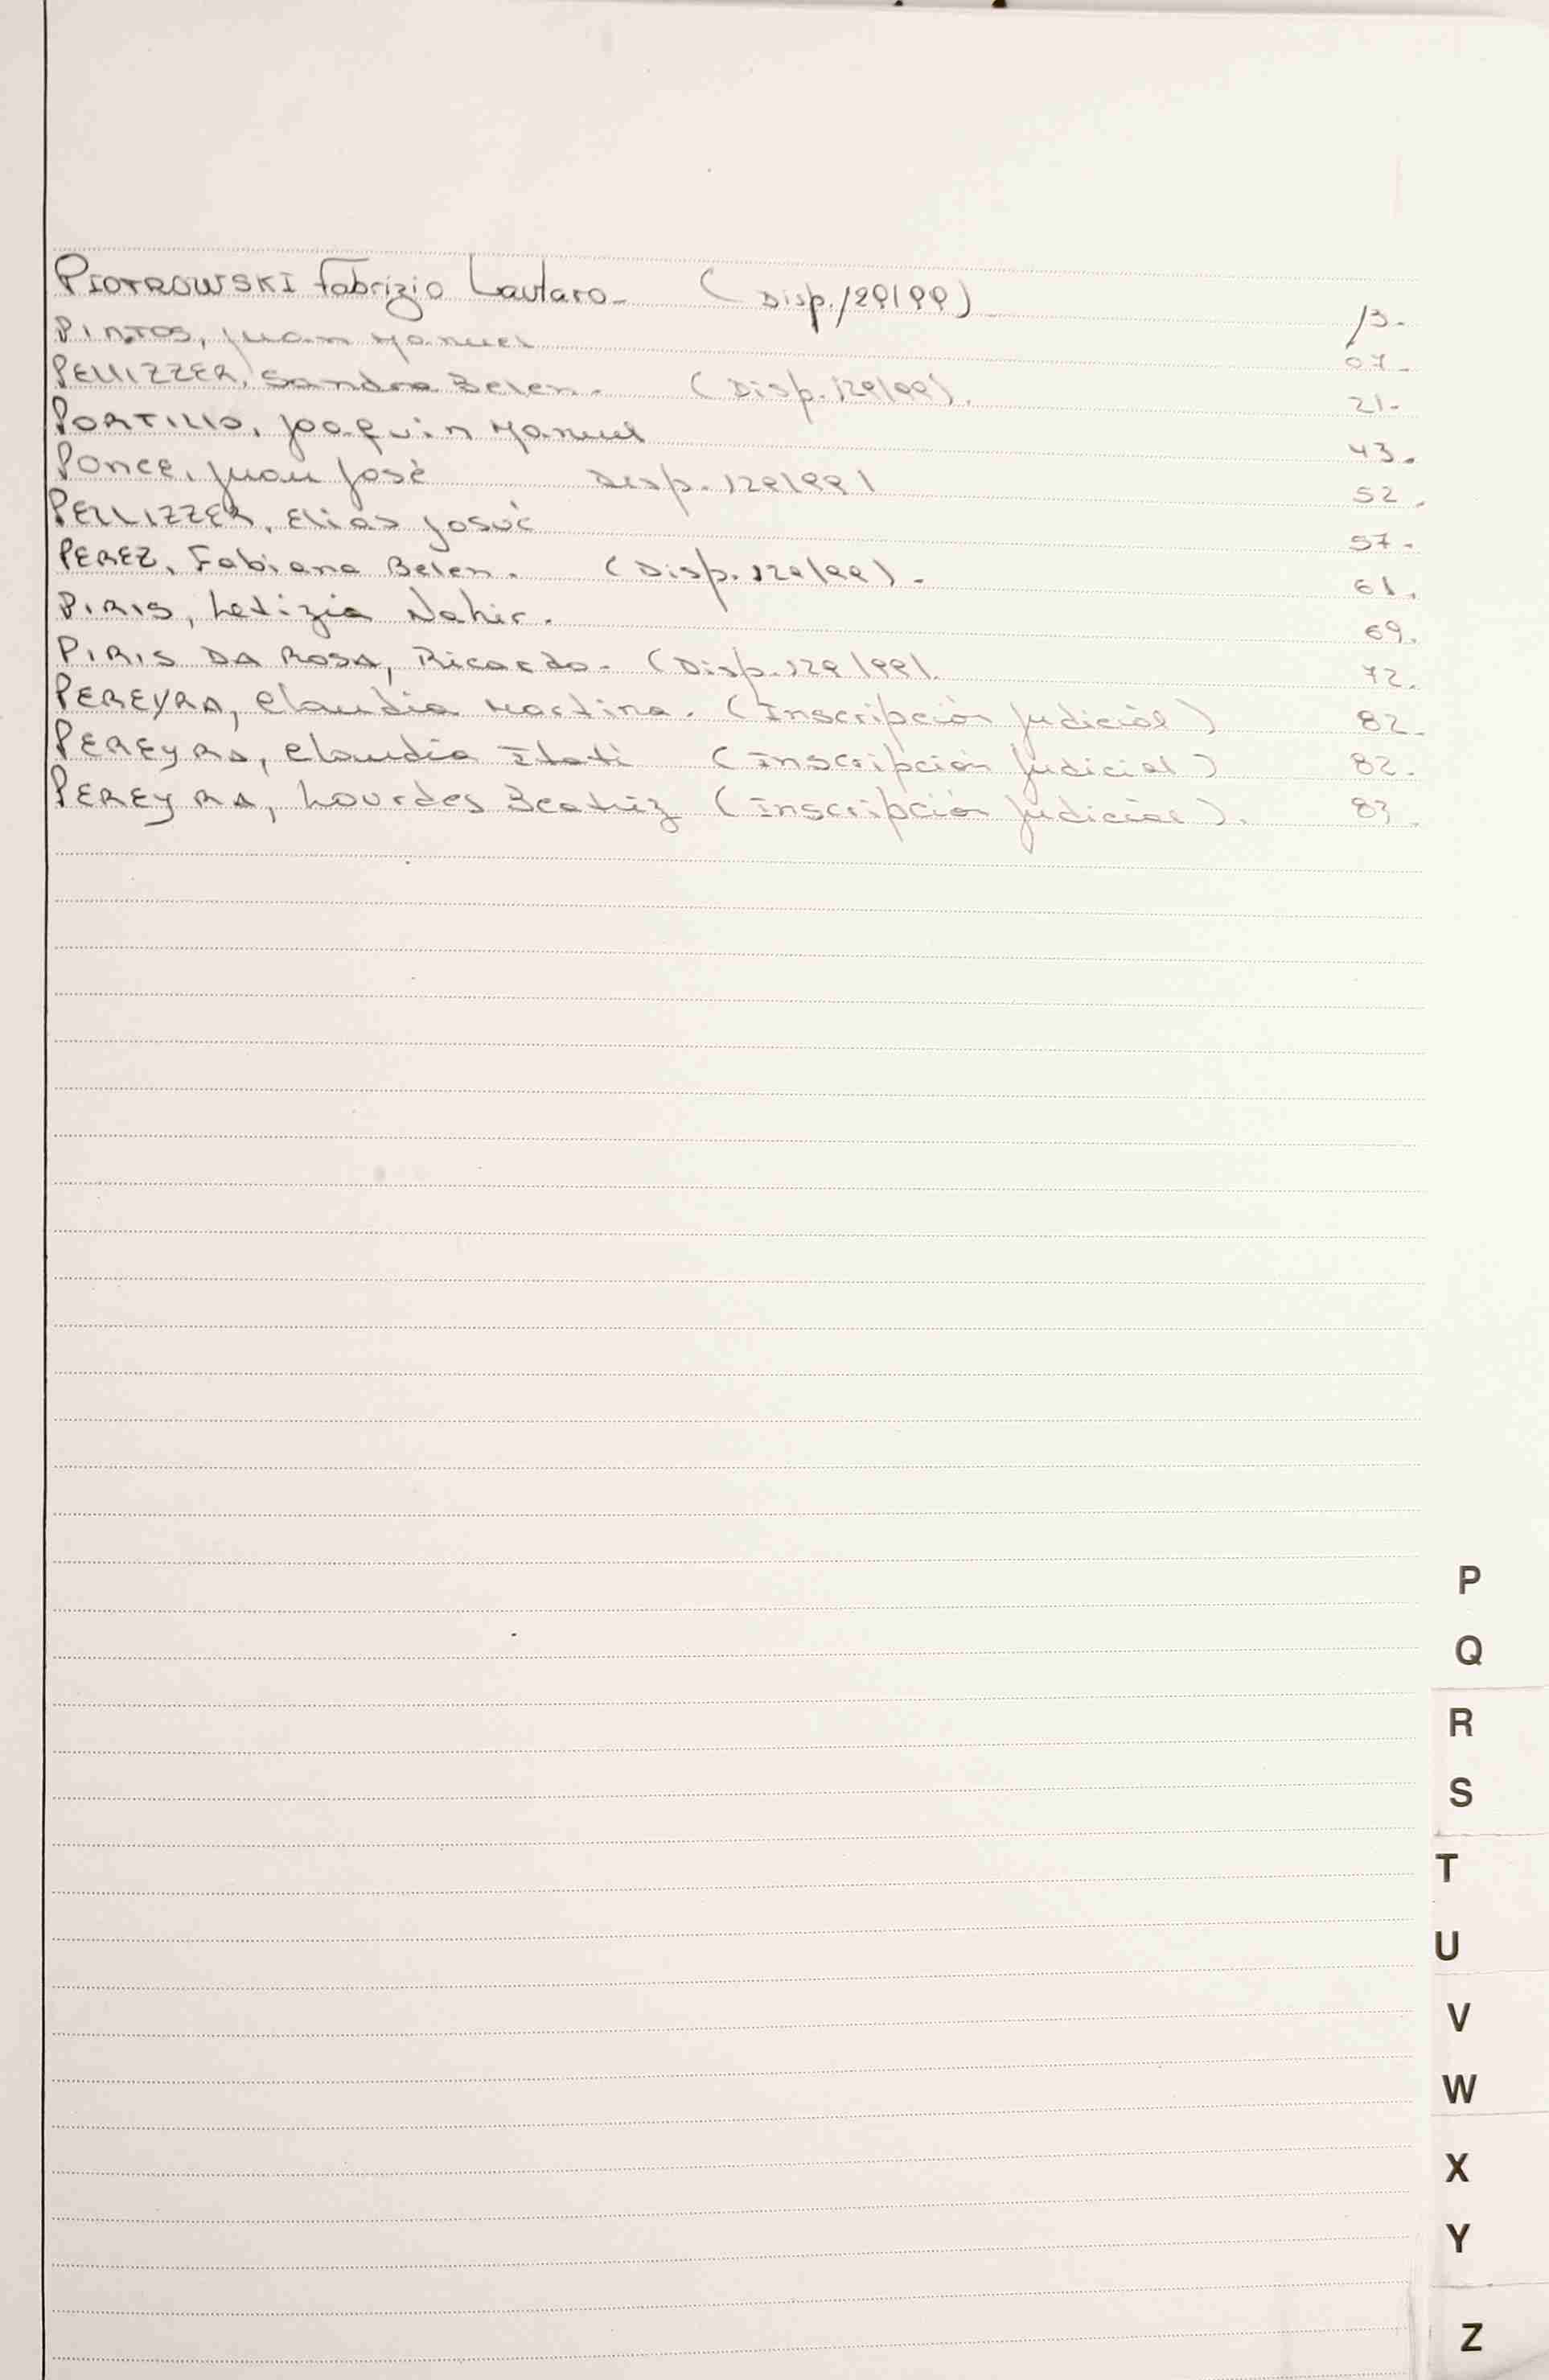 PIOTROWSKI Fabrizio Lautaro- (Disp. 129/99) 13.
PINTOS, Juan Manuel 07.
PELLIZZER, Sandra Belen. (Disp. 129/99). 21.
PORTILLO, Joaquin Manuel 43.
Ponce, Juan José Disp. 129/99/ 52.
PELLIZZER, Elias Josué 57.
PEREZ, Fabiana Belen. (Disp. 129/99). 61.
PIRIS, Letizia Nahir. 69.
PIRIS DA ROSA, Ricardo- (Disp. 129/99/. 72.
PEREYRA, Claudia Martina. (Inscripción Judicial) 82.
PEREyRA, Claudia Itati (Inscripción Judicial) 82.
PEREyRA, Lourdes Beatriz (Inscripción Judicial). 83.
P
Q
R
S
T
U
V
W
X
Y
Z